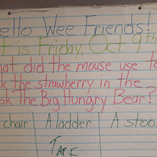 ello Wee Friends!
t is Friday Oct. 9th
hat did the mouse use to
k the strawberry in the
ok the Big Hungry Bear?
chair A ladder A stoo